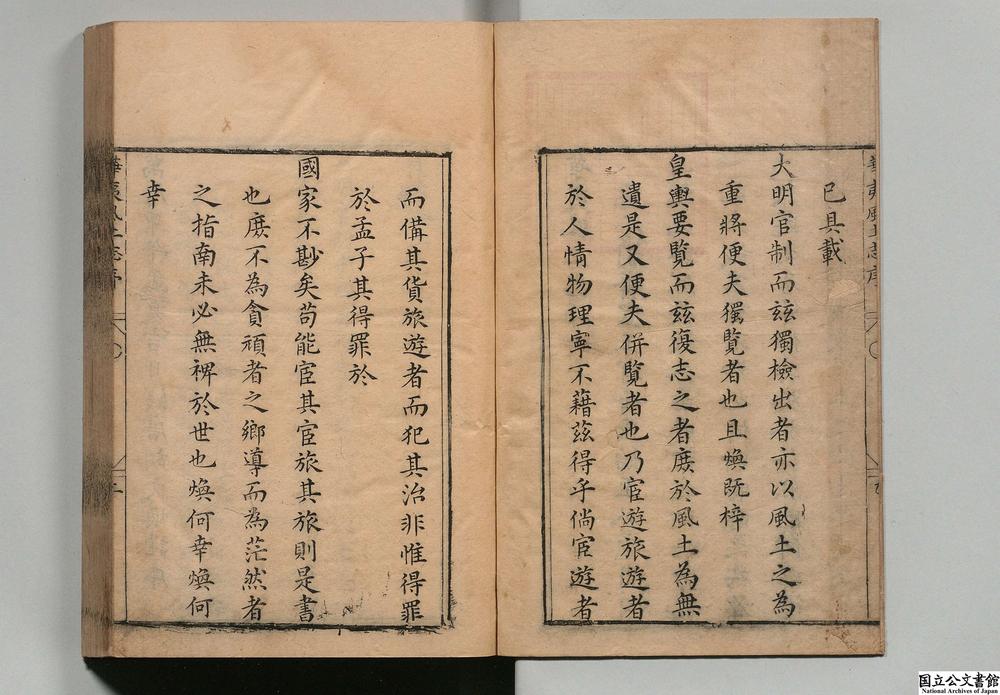 華夷風土志序
已具載
大明官制而兹獨檢出者亦以風土之為
重將便夫獨覽者也且煥既梓
皇輿要覽而兹復志之者庶於風土為無
遺是又便夫併覽者也乃宦遊旅遊者
於人情物理寧不藉兹得乎倘宦遊者
而備其貨旅遊者而犯其治非惟得罪
於孟子其得罪於
國家不尠矣苟能宦其宦旅其旅則是書
也庶不為貪頑者之鄉導而為茫然者
之指南未必無裨於世也煥何幸煥何
幸
華夷風土志序
国立公文書館
National Archives of Japan